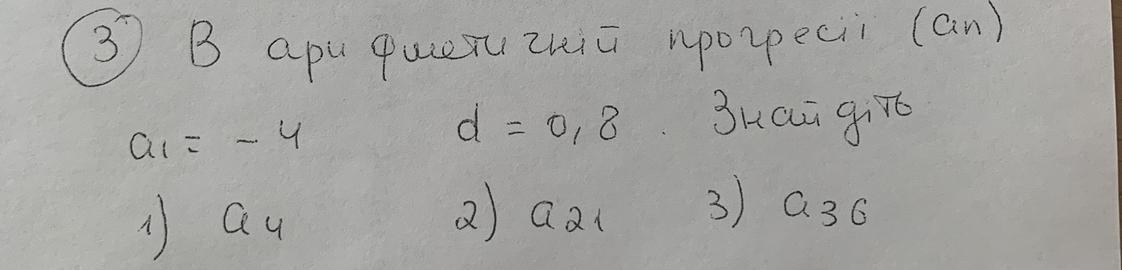 3 В арифметичній прогресії (an)
a1 = - 4 d = 0,8 . Знайдіть
1) a4 2) a21 3) a36